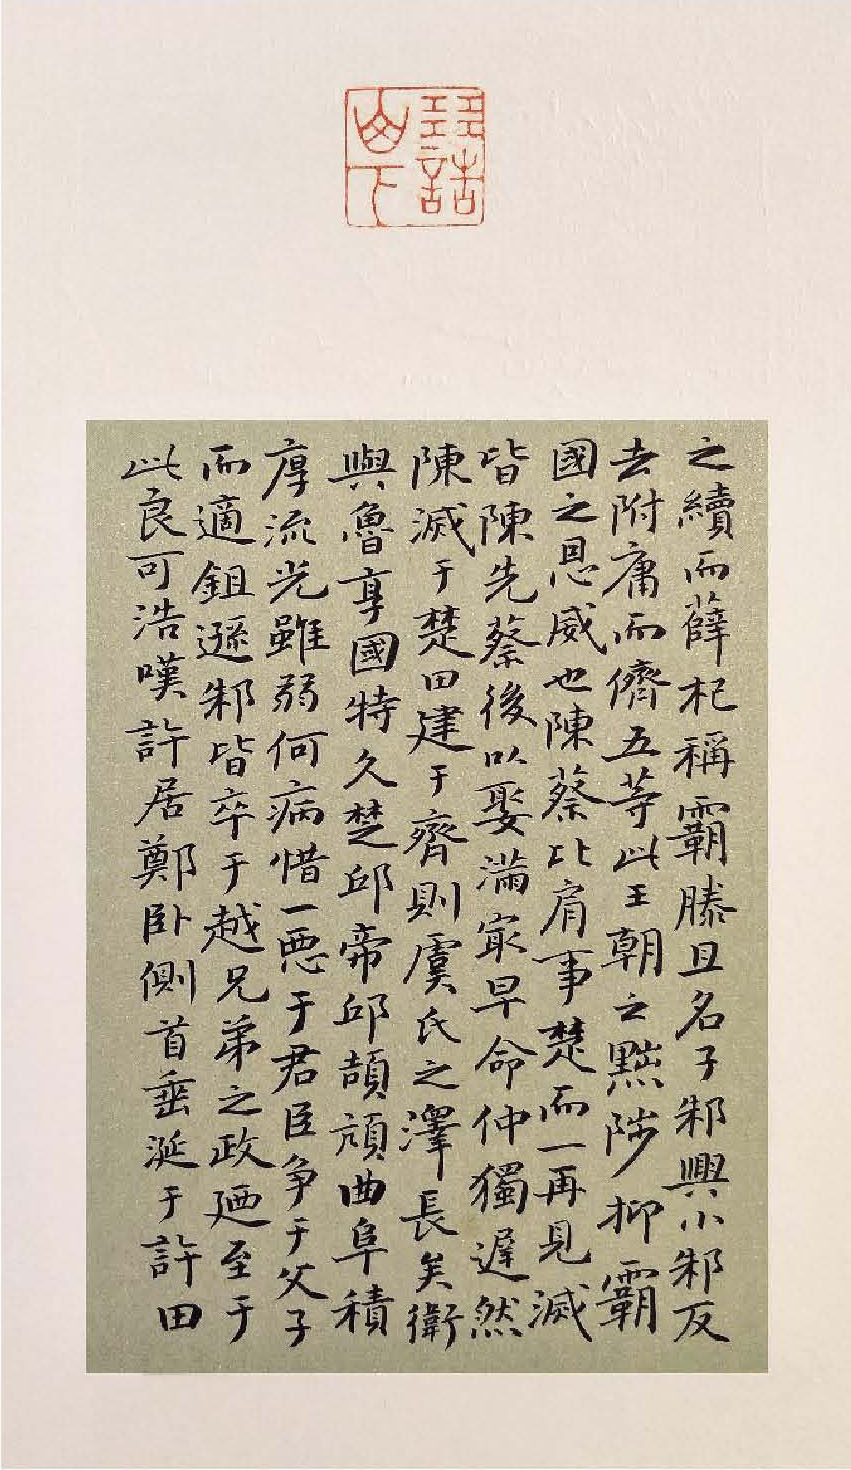 之續而薛杞稱霸滕且名子邾與小邾反
去附庸而儕五等此王朝之黜陟抑霸
國之恩威也陳蔡比肩事楚而一再見滅
皆陳先蔡後以娶滿最早命仲獨遲然
陳滅于楚田建于齊則虞氏之澤長矣衛
與魯享國特久楚邱帝邱頡頏曲阜積
厚流光雖弱何病惜一惡于君臣爭于父子
而適鉏遜邾皆卒于越兄弟之政廼至于
此良可浩嘆許居鄭臥側首垂涎于許田